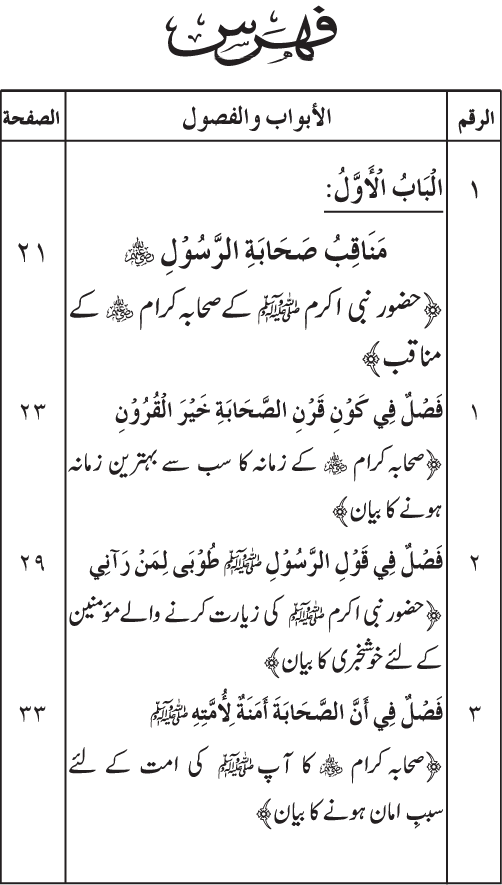 فہرس
الرقم الأبواب والفصول الصفحة
١ الْبَابُ الْأَوَّلُ:
مَنَاقِبُ صَحَابَةِ الرَّسُوْلِ ﷺ ٢١
﴿حضور نبی اکرم ﷺ کے صحابہ کرام ﷺ کے
مناقب﴾
١ فَصْلٌ فِي كَوْنِ قَرْنِ الصَّحَابَةِ خَيْرَ الْقُرُوْنِ ٢٣
﴿صحابہ کرام ﷺ کے زمانہ کا سب سے بہترین زمانہ
ہونے کا بیان﴾
٢ فَصْلٌ فِي قَوْلِ الرَّسُوْلِ ﷺ طُوْبَى لِمَنْ رَآنِي ٢٩
﴿حضور نبی اکرم ﷺ کی زیارت کرنے والے مؤمنین
کے لئے خوشخبری کا بیان﴾
٣ فَصْلٌ فِي أَنَّ الصَّحَابَةَ أَمَنَةٌ لِأُمَّتِهِ ﷺ ٣٣
﴿صحابہ کرام ﷺ کا آپ ﷺ کی امت کے لئے
سببِ امان ہونے کا بیان﴾